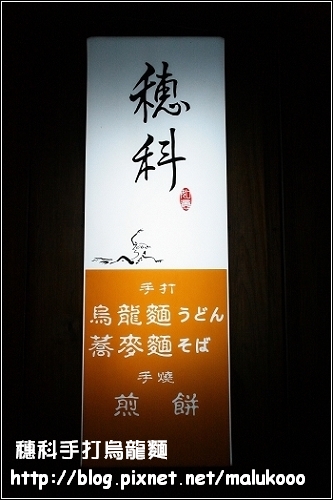 穗科
手打
烏龍麵うどん
蕎麥麵そば
手燒
煎餅
穗科手打烏龍麵
http://blog.pixnet.net/malukooo